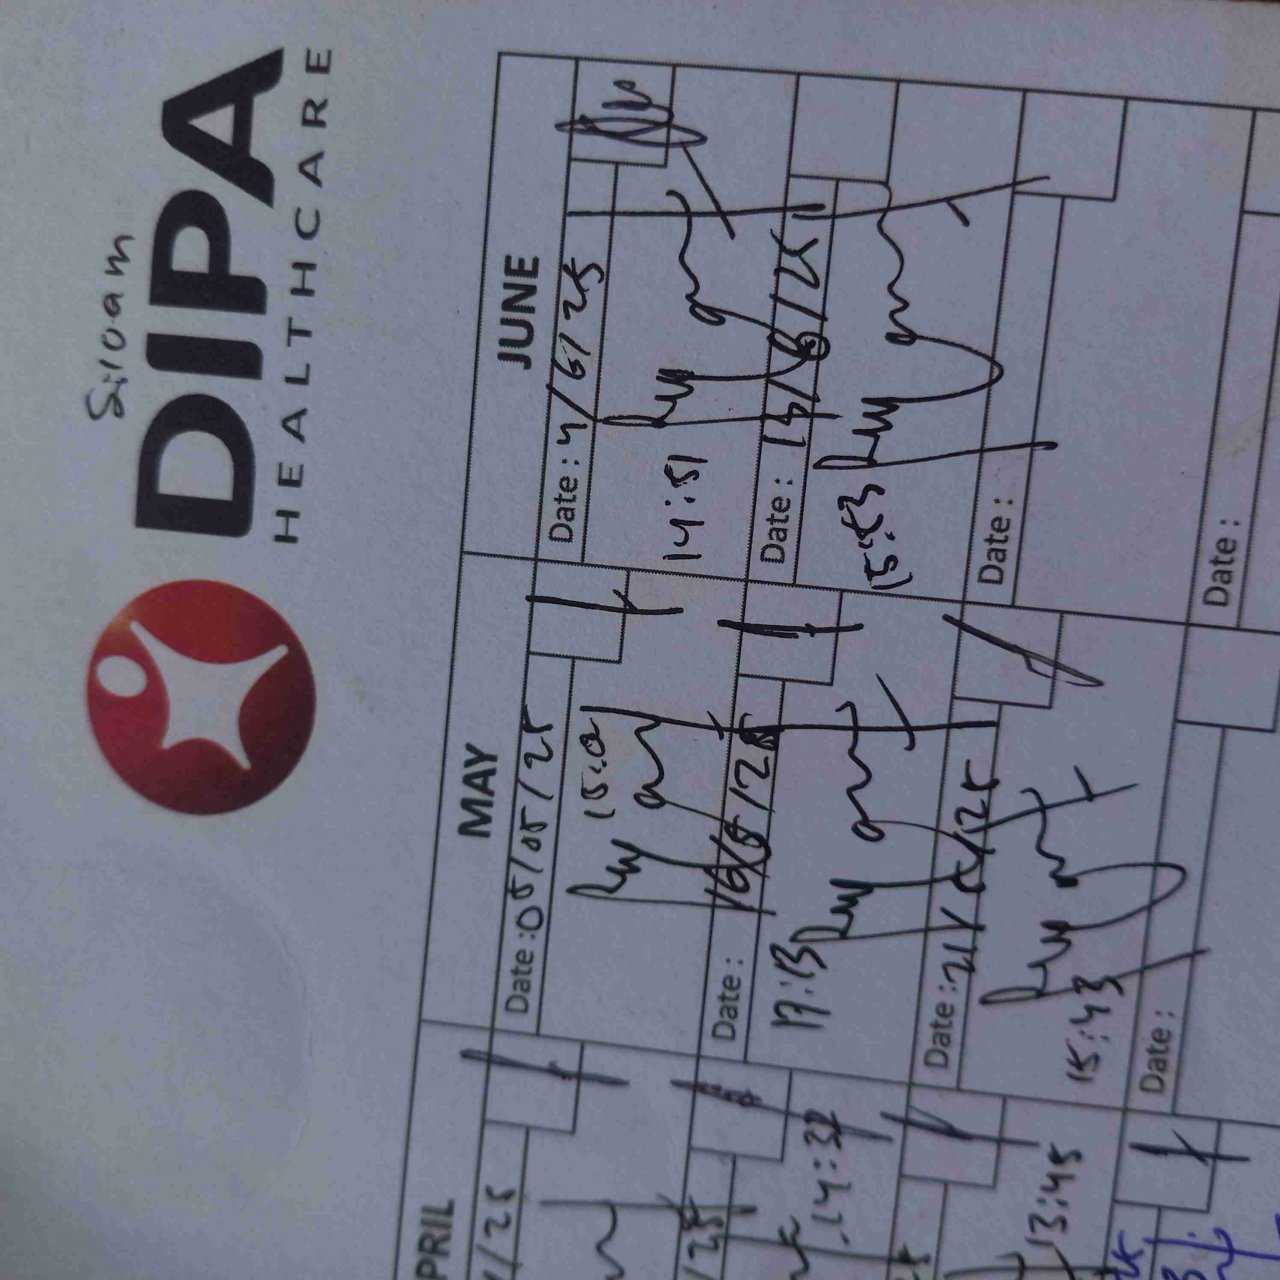 Siloam
DIPA
HEALTHCARE
PRIL
MAY
JUNE
/25
Date : 05/05/25
Date : 4/6/25
15:0
14:51
/25
Date : 16/5/25
Date : 13/6/25
14:32
17:13
15:53
Date : 21/5/25
Date :
13:45
15:43
Date :
Date :